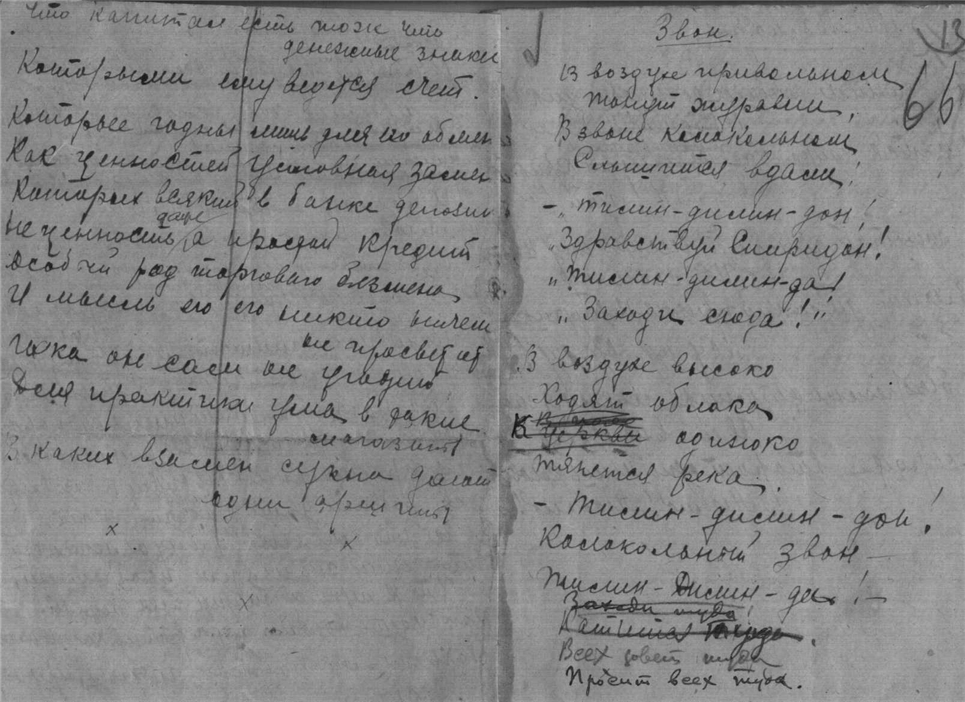 Что капитал есть тож что
денежные знаки
Которыми ему ведется счет.
Которые годны лишь для его обмен
Как ценностей условная замен
Которых всякий в банке
даже
Не ценность а простой кредит
Особый род торгового безмена
И мысль его его никто ничем
не просветит
Пока он сам не угодит
Для практики ума в такие
магазины
В каких взамен сукна дают
одни аршины
х х
х
Звон.
13
66
В воздухе привольном
Тонут журавли,
В звоне колокольном
Слышится вдали!
– „Тилин-дилин-дон!
„Здравствуй Спиридон!
„Тилин-дилин-да!
„Заходи сюда!"
В воздухе высоко
Ходят облака
К церкви одиноко
Тянется река.
– Тилин-дилин-дон!
Колокольный звон –
Тилин-Дилин-да! –
Заходи туда
Всех зовет туда
Просит всех туда.